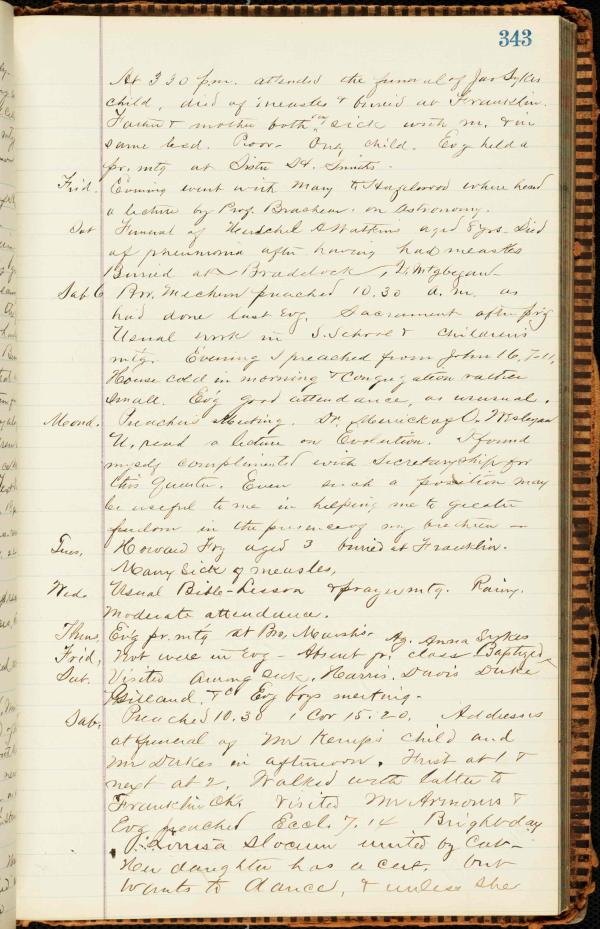 343
At 3 30 p.m. attended the funeral of Jas Sykes
child, died of measles & buried at Franklin.
Father & mother both sick with m. & in
same bed. Poor - Only child. Evg held a
pr. mtg at Sister St. Smiths.
Frid. Evening went with Mary to Hazelwood where heard
a lecture by Prof. Brashear on Astronomy.
Sat Funeral of Herschel S Watkins aged 8 yrs. Died
of pneumonia after having had measles
Buried at Braddock,
Sab 6 Bro. Mechem preached 10.30 a.m. as
had done last Evg. Sacrament after p'r'g
Usual work in S. School & children's
mtg. Evening I preached from John 16, 7-11,
House cold in morning & Congregation rather
small. Evg good attendance, as unusual.
Mond. Preachers Meeting. Dr. Merrick of O. Wesleyan
U. read a lecture on Evolution. I found
myself complimented with Secretaryship for
this Quarter. Even such a position may
be useful to me in helping me to greater
freedom in the presence of my brethren —
Tues, Howard Fry aged 3 buried at Franklin.
Many sick of measles,
Wed. Usual Bible-Lesson & prayer mtg. Rainy.
Moderate attendance.
Thurs, Evg pr. mtg at Bro. Marshs.
Ag. Anna Sykes
Frid, Not well in Evg - Absent fr. class Baptized
Sat. Visited among sick. Harris, Davis Duke
Gilland, &c Evg boys meeting.
Sab, Preached 10.30 1 Cor 15.20. Addresses
at funeral of Mr Kemp's child and
Mr Dukes in afternoon. First at 1 &
next at 2. Walked with latter to
Franklin Visited Mr Armours &
Evg preached Eccl. 7.14 Bright day
Louisa Slocum united by Cert -
Her daughter has a cert. but
wants to dance, & unless she